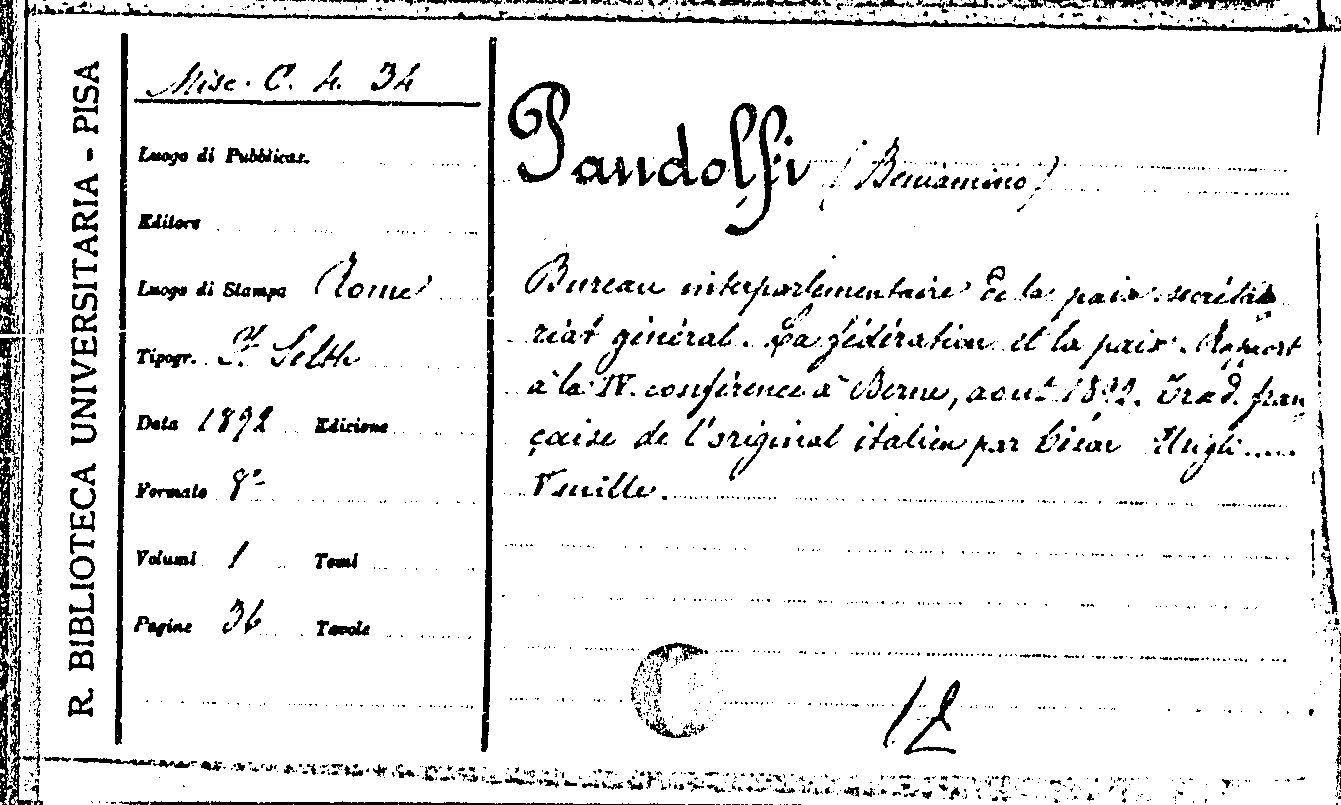 R. BIBLIOTECA UNIVERSITARIA - PISA
Misc. C. 4. 34
Luogo di Pubblicaz.
Editore
Luogo di Stampa Rome
Tipogr.
Data 1892 Edizione
Formato 8°
Volumi 1 Tomi
Pagine 36 Tavole
Pandolfi (Beniamino)
Bureau interparlementaire de la paix secréta
riat général. La fédération et la paix. Rapport
à la IV. conférence à Berne, aout 1892. Trad. fran
çaise de l'original italien par César
12